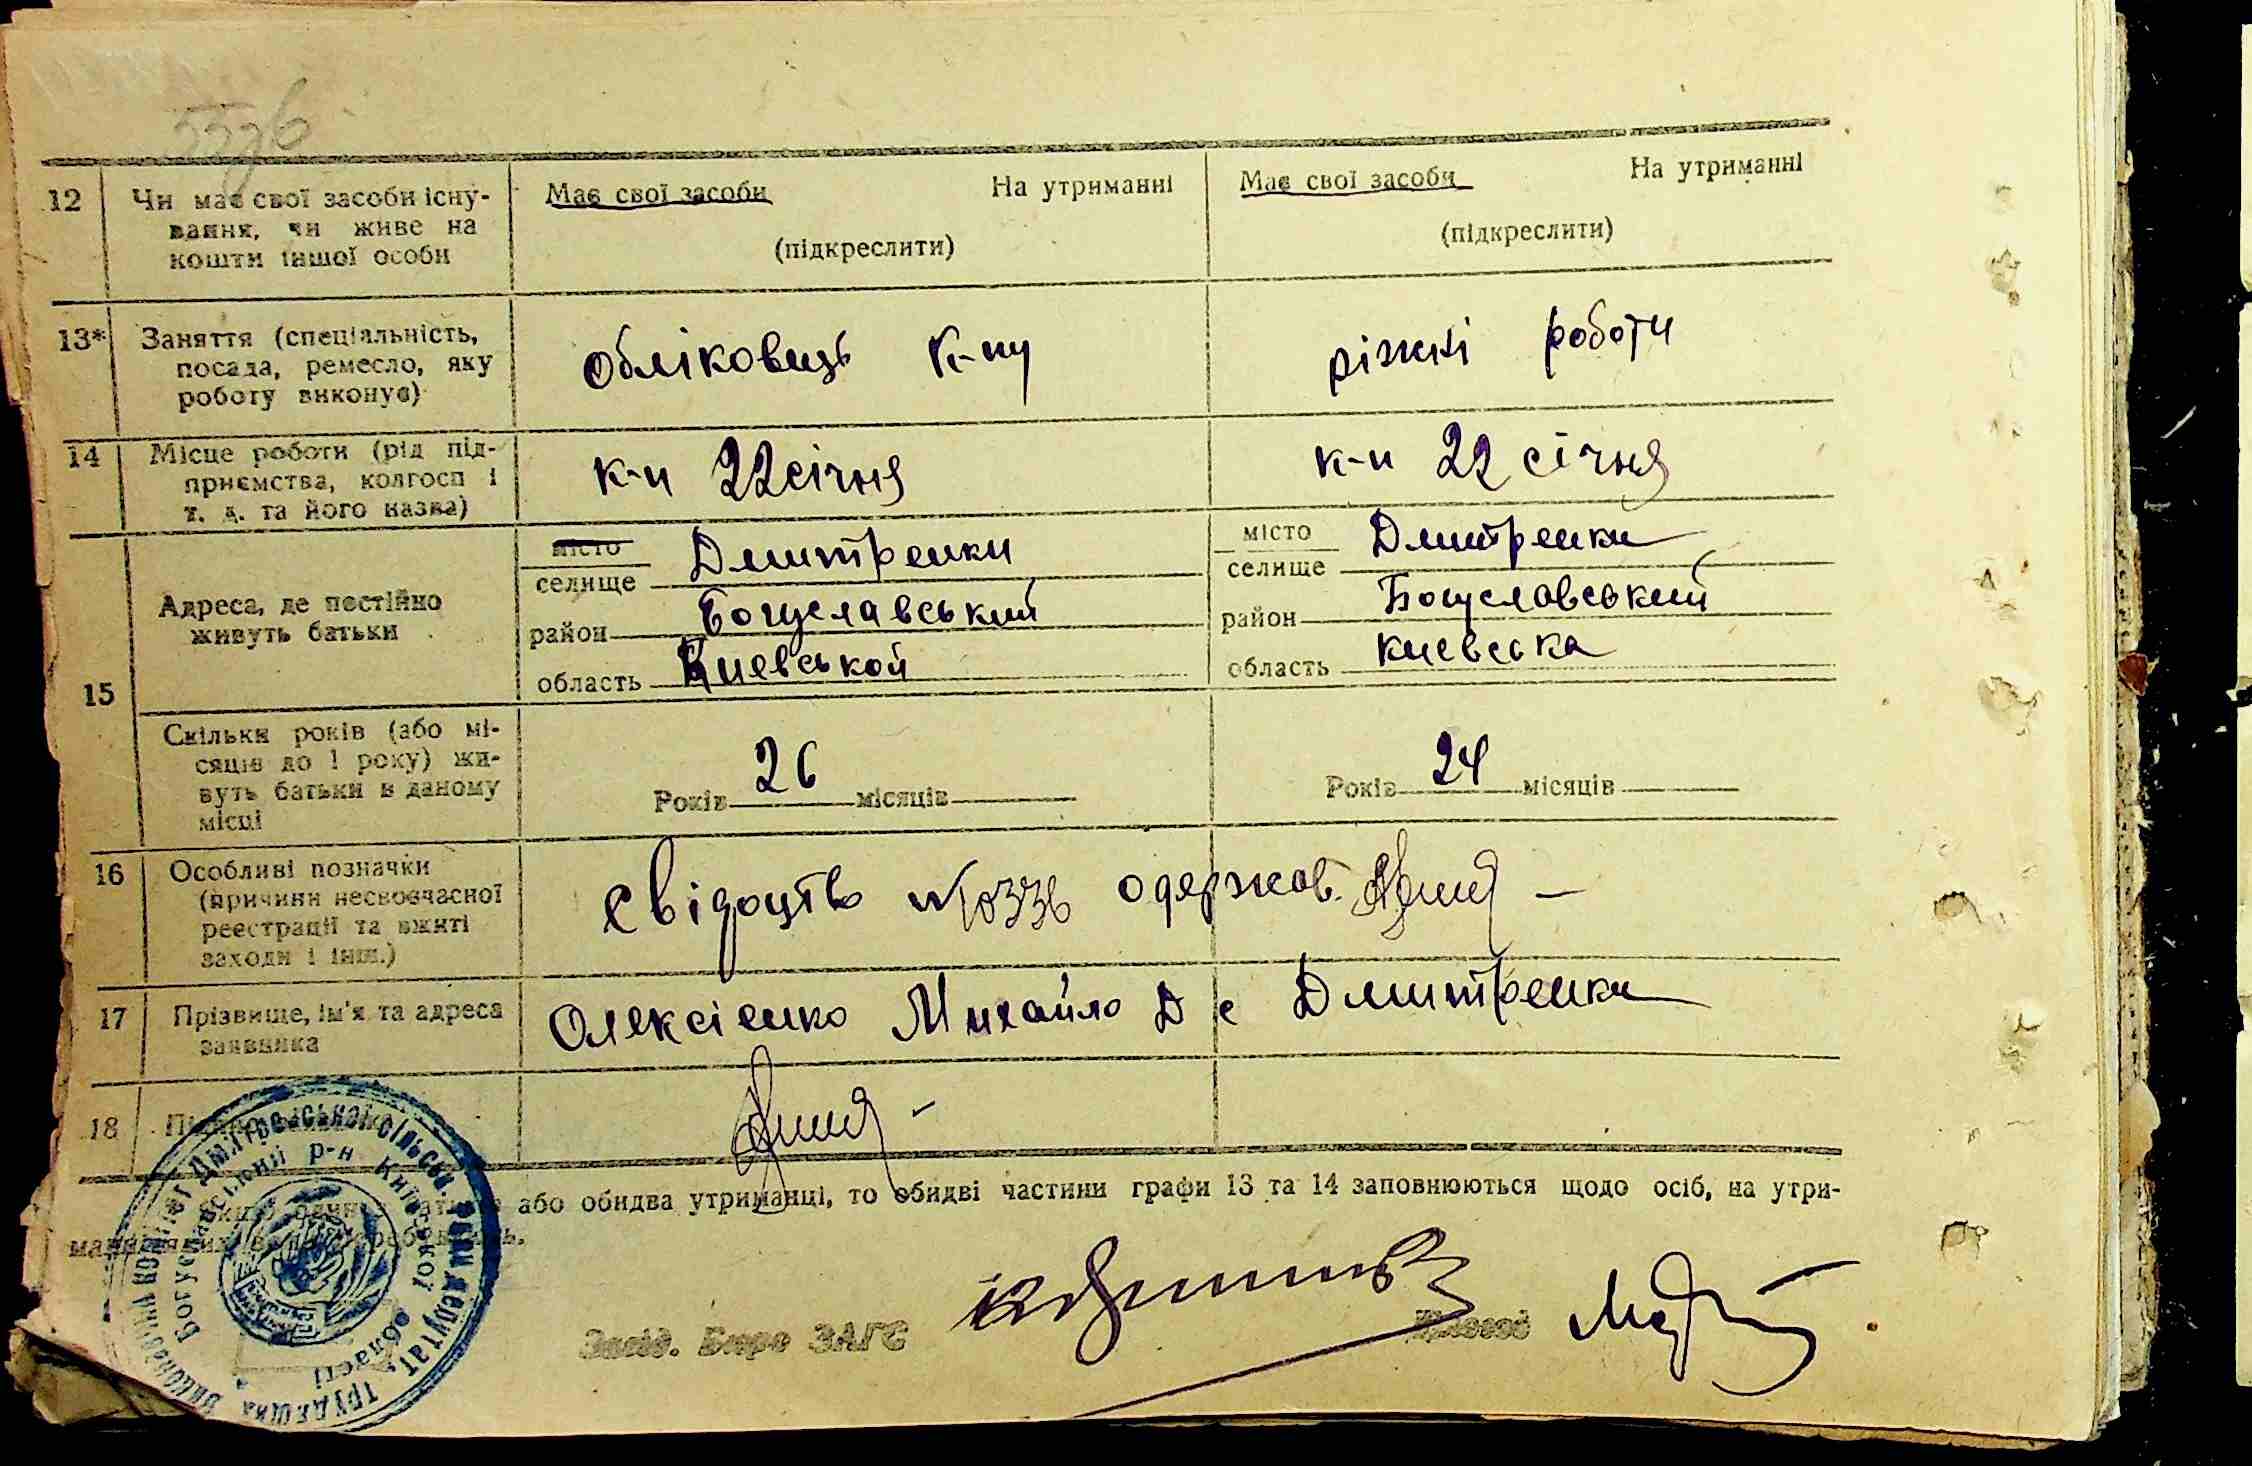 12 Чи має свої засоби існу- Має свої засоби На утриманні Має свої засоби На утриманні
вання, чи живе на (підкреслити) (підкреслити)
кошти іншої особи
13* Заняття (спеціальність,
посада, ремесло, яку обліковець к-пу ріжні роботи
роботу виконує)
14 Місце роботи (рід під-
приємства, колгосп і к-п 22 січня к-п 22 січня
т. д. та його назва)
15 Адреса, де постійно
живуть батьки
місто Дмитренки місто Дмитренки
селище селище
район Богуславський район Богуславський
область Киевськой область Киевська
Скільки років (або мі-
сяців до 1 року) жи-
вуть батьки в даному Років 26 місяців Років 24 місяців
місці
16 Особливі позначки
(причини несвоєчасної свідоцтво одержав
реєстрації та вжиті
заходи і інш.)
17 Прізвище, ім'я та адреса Олексієнко Михайло Д с Дмитренки
заявника
18
або обидва утриманці, то обидві частини графи 13 та 14 заповнюються щодо осіб, на утри-
Завід. Бюро ЗАГС
Богуславський р-н Київської області